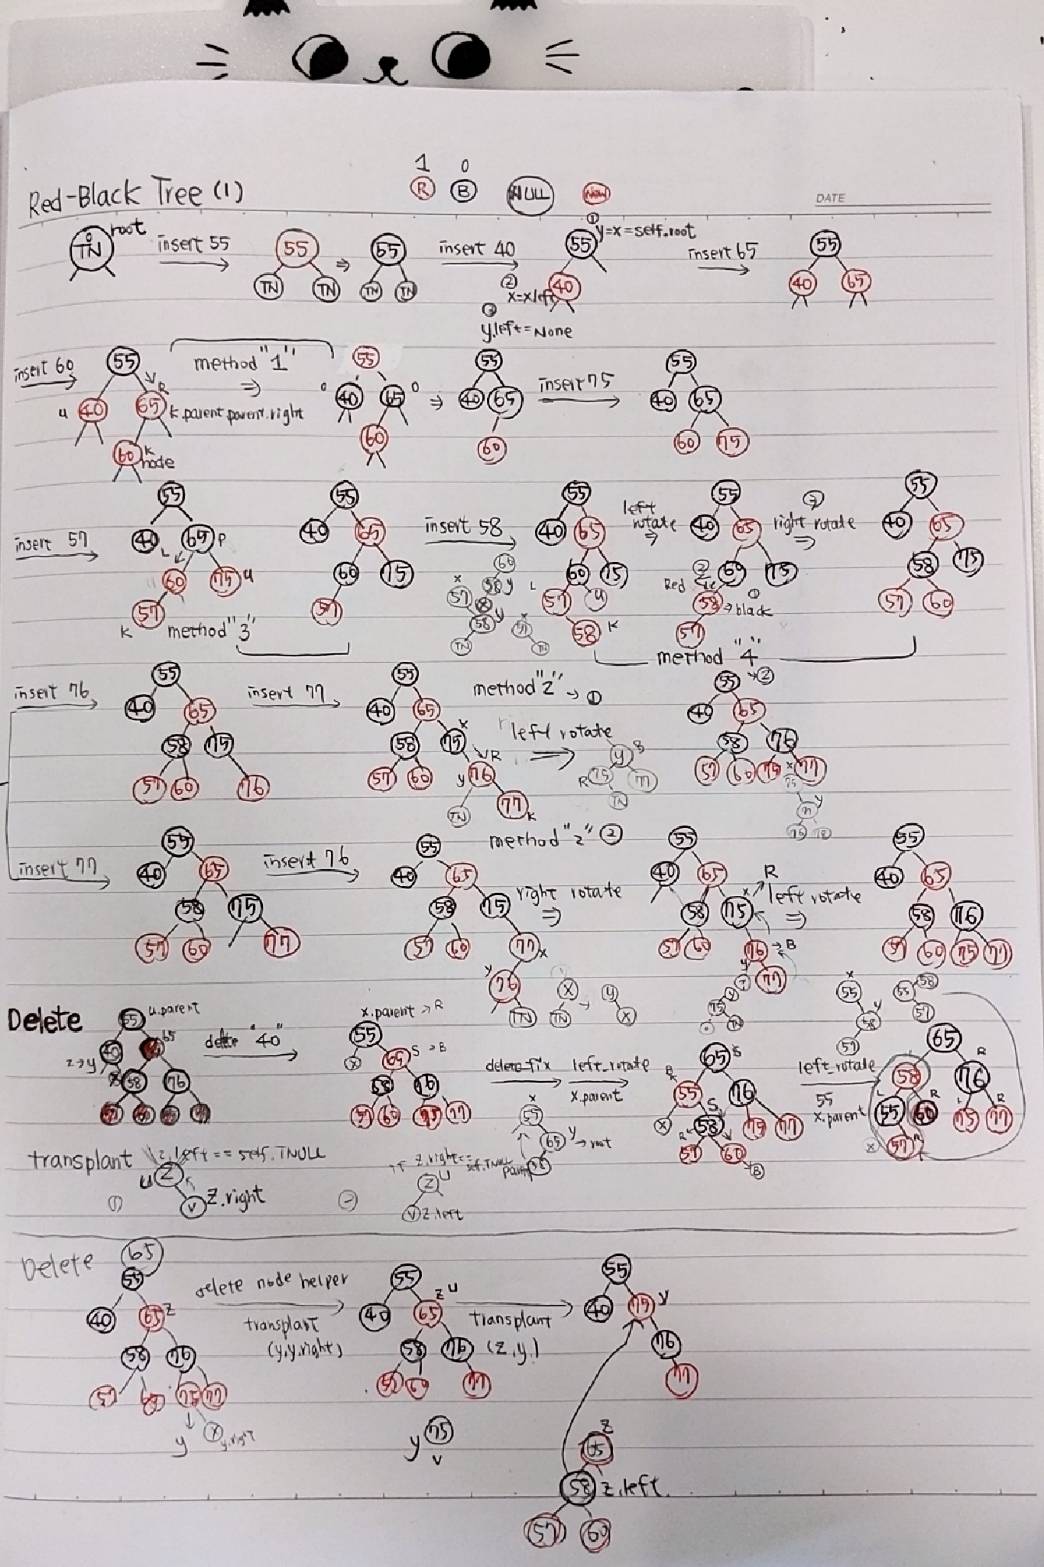 1 0
Red-Black Tree (1) R B NULL New DATE
TN root insert 55 55 TN TN ⇒ 55 TN TN insert 40 ① y=x=self.root 55 ② x=x.left 40 insert 65 55 40 65
y.left=None
insert 60 55 R u 40 65 k.parent.parent.right 60 k node method "1" ⇒ 55 40 0 65 0 60 ⇒ 55 40 65 60 insert 75 55 40 65 60 75
insert 57 55 40 L 65 P 60 75 u 57 K method "3" 55 40 65 60 75 57 insert 58 55 40 65 60 75 L 57 58 K left rotate ⇒ 55 40 65 60 75 Red 58 → black 57 ② right rotate ⇒ 55 40 65 58 75 57 60
method "4"
insert 76 55 40 65 58 75 57 60 76 insert 77 55 40 65 58 75 x 57 60 y 76 R TN 77 K method "2" → ① left rotate 55 → ② 40 65 58 76 57 60 75 77
insert 77 55 40 65 58 75 57 60 77 insert 76 55 40 65 58 75 57 60 77 x y 76 TN method "2" ② right rotate ⇒ 55 40 65 58 75 R 57 60 76 → B 77 left rotate ⇒ 55 40 65 58 76 57 60 75 77
Delete 55 u.parent 40 65 z→y 58 76 delete "40" x.parent → R 55 x 65 S → B 58 76 57 60 75 77 delete-fix left-rotate x.parent 65 55 76 x 58 75 77 57 60 left rotate 55 x.parent 65 58 76 R 55 60 75 77 57
transplant z.left == self.TNULL
① u z v z.right ② if z.right == self.TNULL z u v z.left
Delete 65
55 40 65 z 58 76 57 60 75 77 y x y.right
delete node helper
transplant (y, y.right)
55 40 65 z u 58 76 57 60 77 y 75 v
transplant (z, y)
55 40 75 y 76 77
65 z
58 z.left
57 60